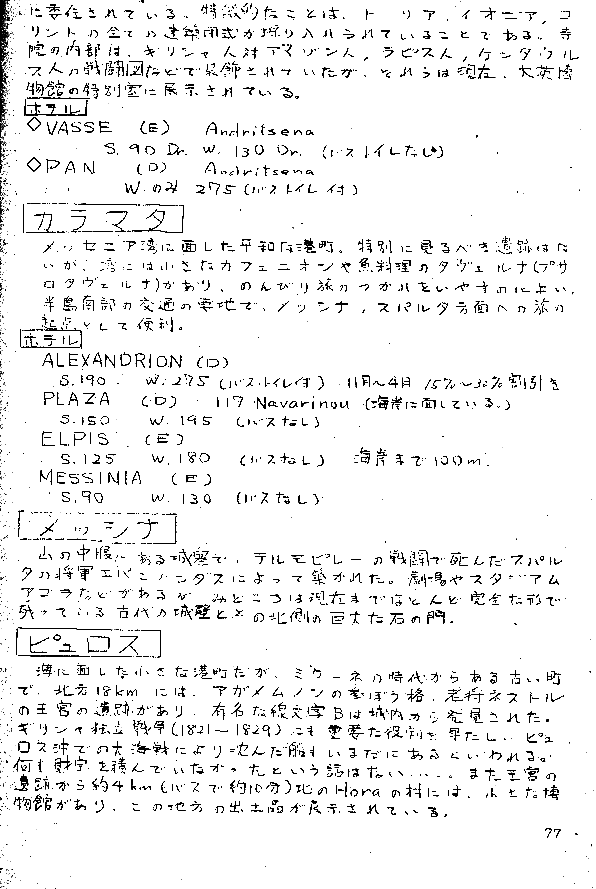 に委任されている。特徴的なことは、ドーリア、イオニア、コ
リントの全ての建築様式が採り入れられていることである。寺
院の内部は、ギリシャ人対アマゾン人、ラピス人、ケンタウル
ス人の戦闘図などで装飾されていたが、それらは現在、大英博
物館の特別室に展示されている。
ホテル
◇VASSE (E) Andritsena
S. 90 Dr. W. 130 Dr. (バストイレなし)
◇PAN (D) Andritsena
W.のみ 275 (バストイレ付)
カラマタ
メッセニア湾に面した平和な港町。特別に見るべき遺跡はな
いが、湾には小さなカフェニオンや魚料理のタヴェルナ(プサ
ロタヴェルナ)があり、のんびり旅のつかれをいやすのによい。
半島南部の交通の要地で、メッシナ、スパルタ方面への旅の
起点として便利。
ホテル
ALEXANDRION (D)
S.190 W.275 (バストイレ付) 11月〜4月 15%〜30%割引き
PLAZA (D) 117 Navarinou (海岸に面している。)
S.150 W.195 (バスなし)
ELPIS (E)
S.125 W.180 (バスなし) 海岸まで100m.
MESSINIA (E)
S.90 W.130 (バスなし)
メッシナ
山の中腹にある城塞で、テルモピレーの戦闘で死んだスパル
タの将軍エパミノンダスによって築かれた。劇場やスタジアム
アゴラなどがあるが みどころは現在までほとんど完全な形で
残っている古代の城壁とその北側の巨大な石の門。
ピュロス
海に面した小さな港町だが、ミケーネの時代からある古い町
で、北方18kmには、アガメムノンの参ぼう格、老将ネストル
の王宮の遺跡があり、有名な線文字Bは城内から発見された。
ギリシャ独立戦争(1821〜1829)にも重要な役割を果たし、ピュ
ロス沖での大海戦により沈んだ船もいまだにあるといわれる。
何も財宝を積んでいなかったという話はない……。また王宮の
遺跡から約4km(バスで約10分)北のHoraの村には、小さな博
物館があり、この地方の出土品が展示されている。
77